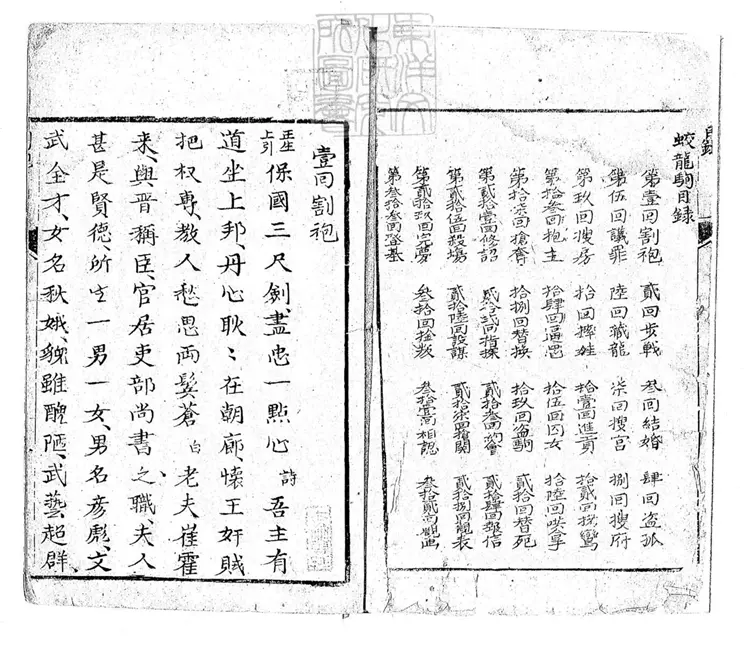 蛟龍駒目録
第壹回割袍 貳回步戰 叁回結婚 肆回盗孤
第伍回議罪 陸回藏龍 柒回搜宫 捌回搜府
第玖回搜房 拾回摔娃 拾壹回進貢 拾貳回
第拾叁回抱主 拾肆回逼忠 拾伍回囚女 拾陸回哭享
第拾柒回搶奪 拾捌回替换 拾玖回盗駒 貳拾回替死
第貳拾壹回修詔 貳拾貳回指揮 貳拾叁回約會 貳拾肆回報信
第貳拾伍回殺場 貳拾陸回設謀 貳拾柒回搶關 貳拾捌回觀表
第貳拾玖回完夢 叁拾回捡救 叁拾壹回相認 叁拾貳回觀画
第叁拾叁回登基
壹回割袍
正生上引 保國三尺劍、盡忠一點心 詩 吾主有
道坐上邦、丹心耿〻在朝廊、懷王奸賊
把权專、教人愁思両鬓蒼 白 老夫崔霍
来、與晋稱臣、官居吏部尚書之職、夫人
甚是賢德、所生一男一女、男名彦彪、文
武全才、女名秋娥、貌雖醜陋、武藝超群、